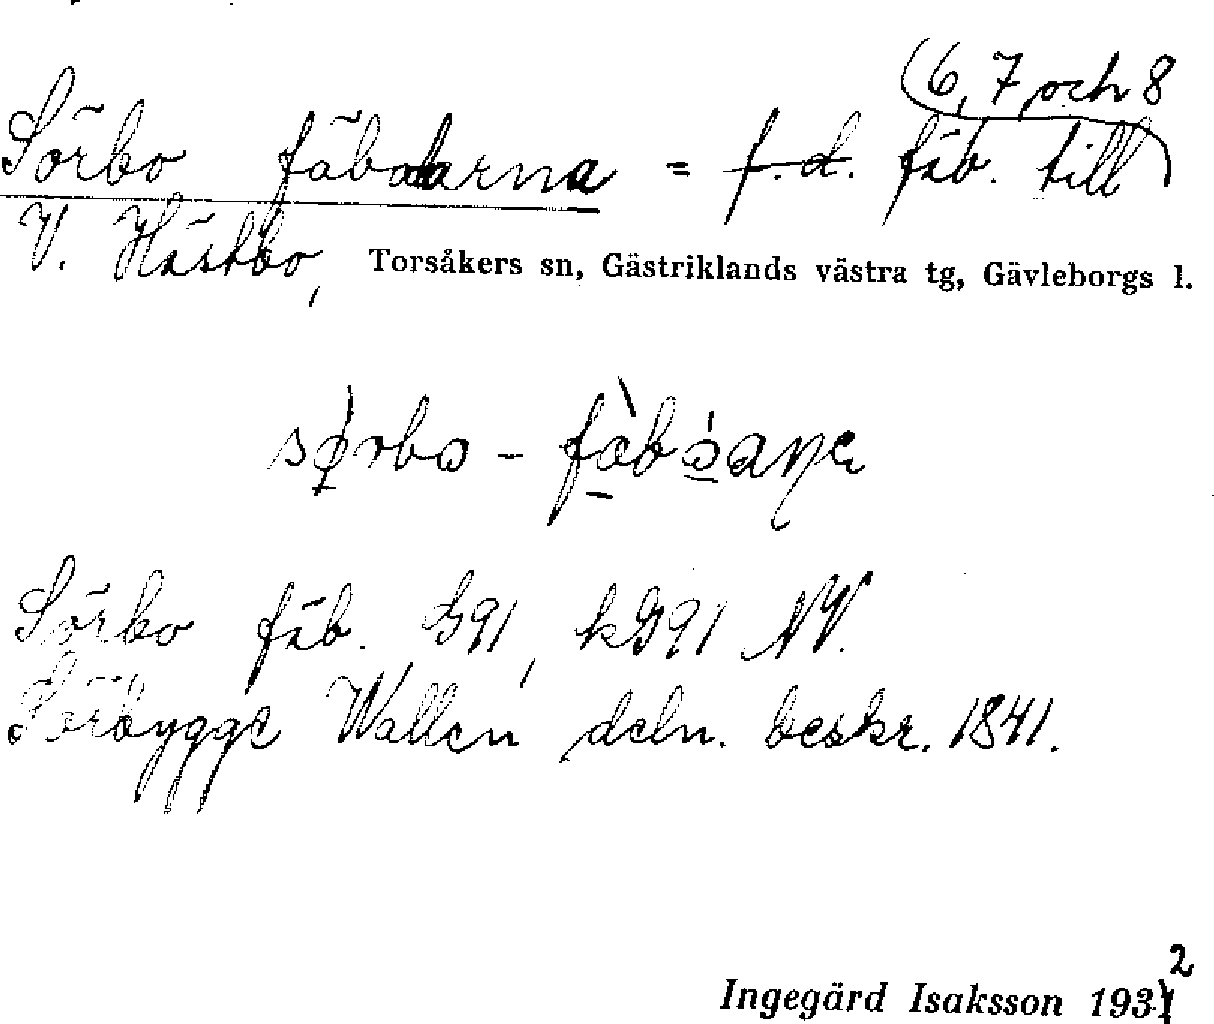 6, 7 och 8
Sörbo fäbodarna = f. d. fäb. till
V. Hästbo, Torsåkers sn, Gästriklands västra tg, Gävleborgs l.
Sörbo fäb. G91, kG91 NV.
Sörbygge Wallen deln. beskr. 1841.
Ingegärd Isaksson 1932